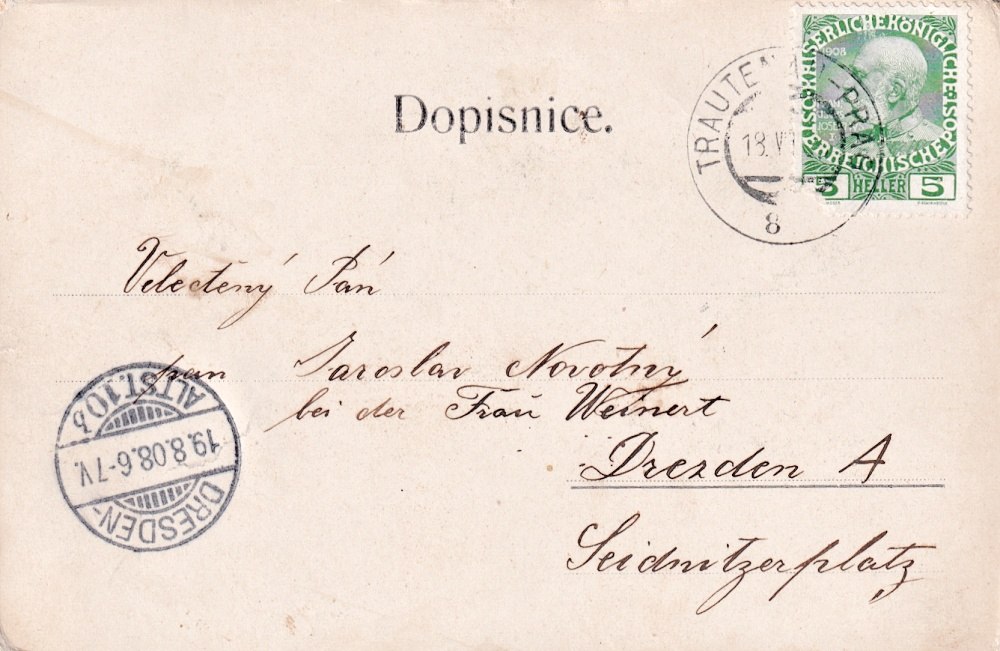 Dopisnice.
TRAUTENAU-PRAG
18.VI
8
KAISERLICHEKÖNIGLICHE
ÖSTERREICHISCHEPOST
1908
5 HELLER 5
Velectěný Pán
pan Jaroslav Novotný
bei der Frau Weinert
Drezden A
Seidnitzerplatz
DRESDEN-
ALTST.10b
19.8.08.6-7V.